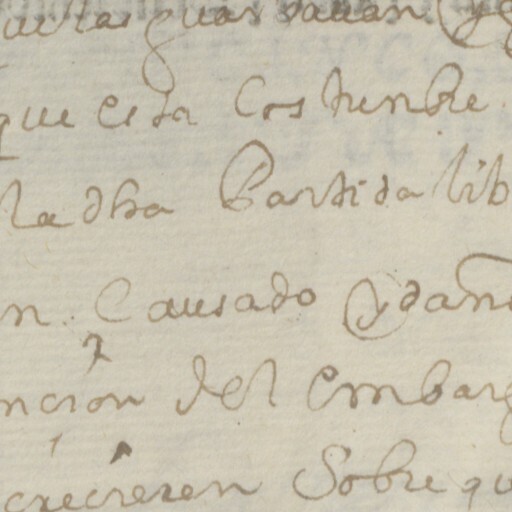 que esta Costunbre
la dha Partida lib
n. Causado y dan
ncion del embarg
crecieren Sobre qu